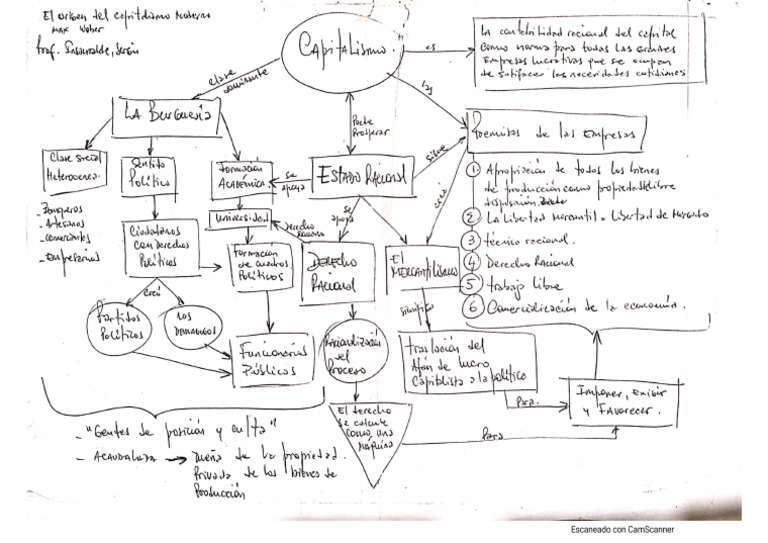 El origen del capitalismo Moderno
Max Weber
Prof. Insaurralde, Serán
Capitalismo.
es
La contabilidad racional del capital
como norma para todas las
Empresas lucrativas que se ocupan
de satisfacer las necesidades cotidianas
clase
dominante
las
Puede
Prosperar
LA Burguesía
Premisas de las Empresas
Clase social
Heterogenea.
- Banqueros
- Artesanos
- comerciantes
- Empresarios
Sentido
Político
Formación
Académica
se
apoya
ESTADO Racional
sirve
creó
1 Apropiación de todos los bienes
de producción como propiedad libre
disposición.
2 La libertad Mercantil = libertad de Mercado
3 técnica racional.
4 Derecho Racional
5 trabajo libre
6 Comercialización de la economía.
Ciudadanos
con derechos
Políticos
universidad
Derecho
se
apoya
Formación
de cuadros
Políticos
Derecho
Racional
El
MERCANTILISMO
creó
Partidos
Políticos
Los
DEMAGOGOS
Funcionarios
Públicos
Racionalización
del
Proceso
significa
traslación del
Afán de lucro
Capitalista a lo político
Para
Imponer, Exigir
y Favorecer.
El derecho
se calcule
como una
Máquina
Para
- "Gentes de posición y culta"
- ACAUDALADA → Dueña de la propiedad
Privada de los bienes de
Producción
Escaneado con CamScanner